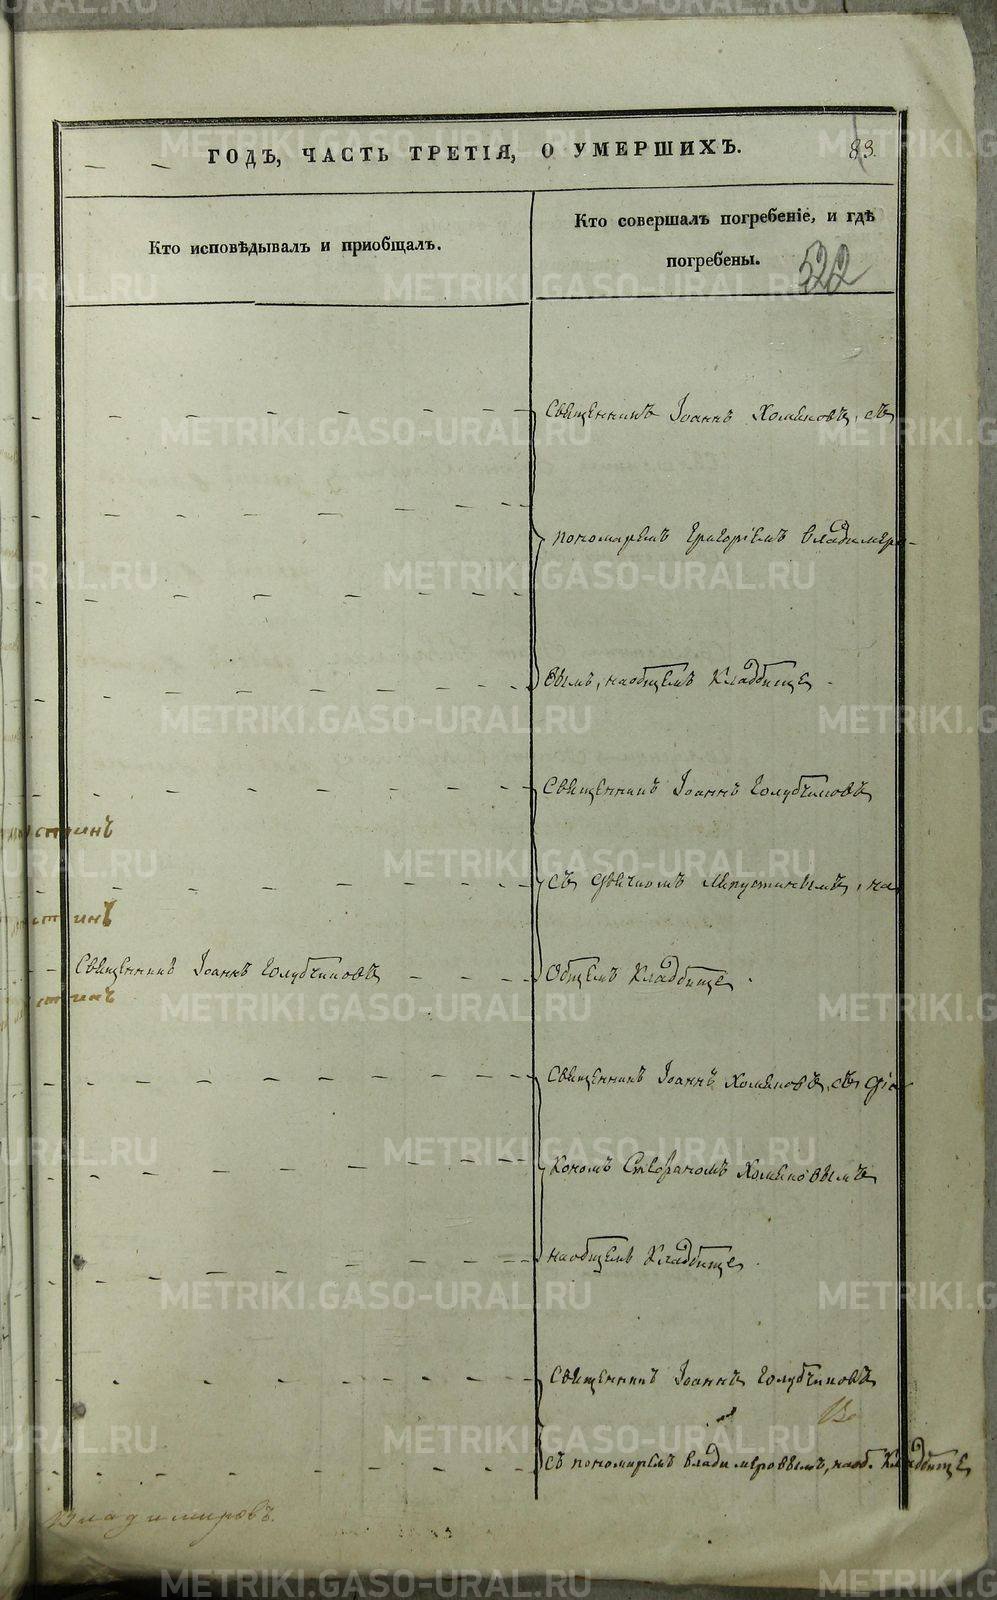 ГОДЪ, ЧАСТЬ ТРЕТІЯ, О УМЕРШИХЪ.
83.
Кто исповѣдывалъ и пріобщалъ.
Кто совершалъ погребеніе, и гдѣ
погребены.
522
Священникъ Іоаннъ Хомяковъ, съ
пономаремъ Григоріемъ Владимиро-
вымъ, на общемъ кладбище.
Священникъ Іоаннъ Голубчиковъ
съ дьячкомъ Мапустинымъ, на
Священникъ Іоаннъ Голубчиковъ
общемъ кладбище.
Священникъ Іоаннъ Хомяковъ, съ діа
кономъ Стефаномъ Хомяковымъ
на общемъ кладбище.
Священникъ Іоаннъ Голубчиковъ
съ пономаремъ Владимеровымъ, на об. кладбище
Владимировъ.
METRIKI.GASO-URAL.RU